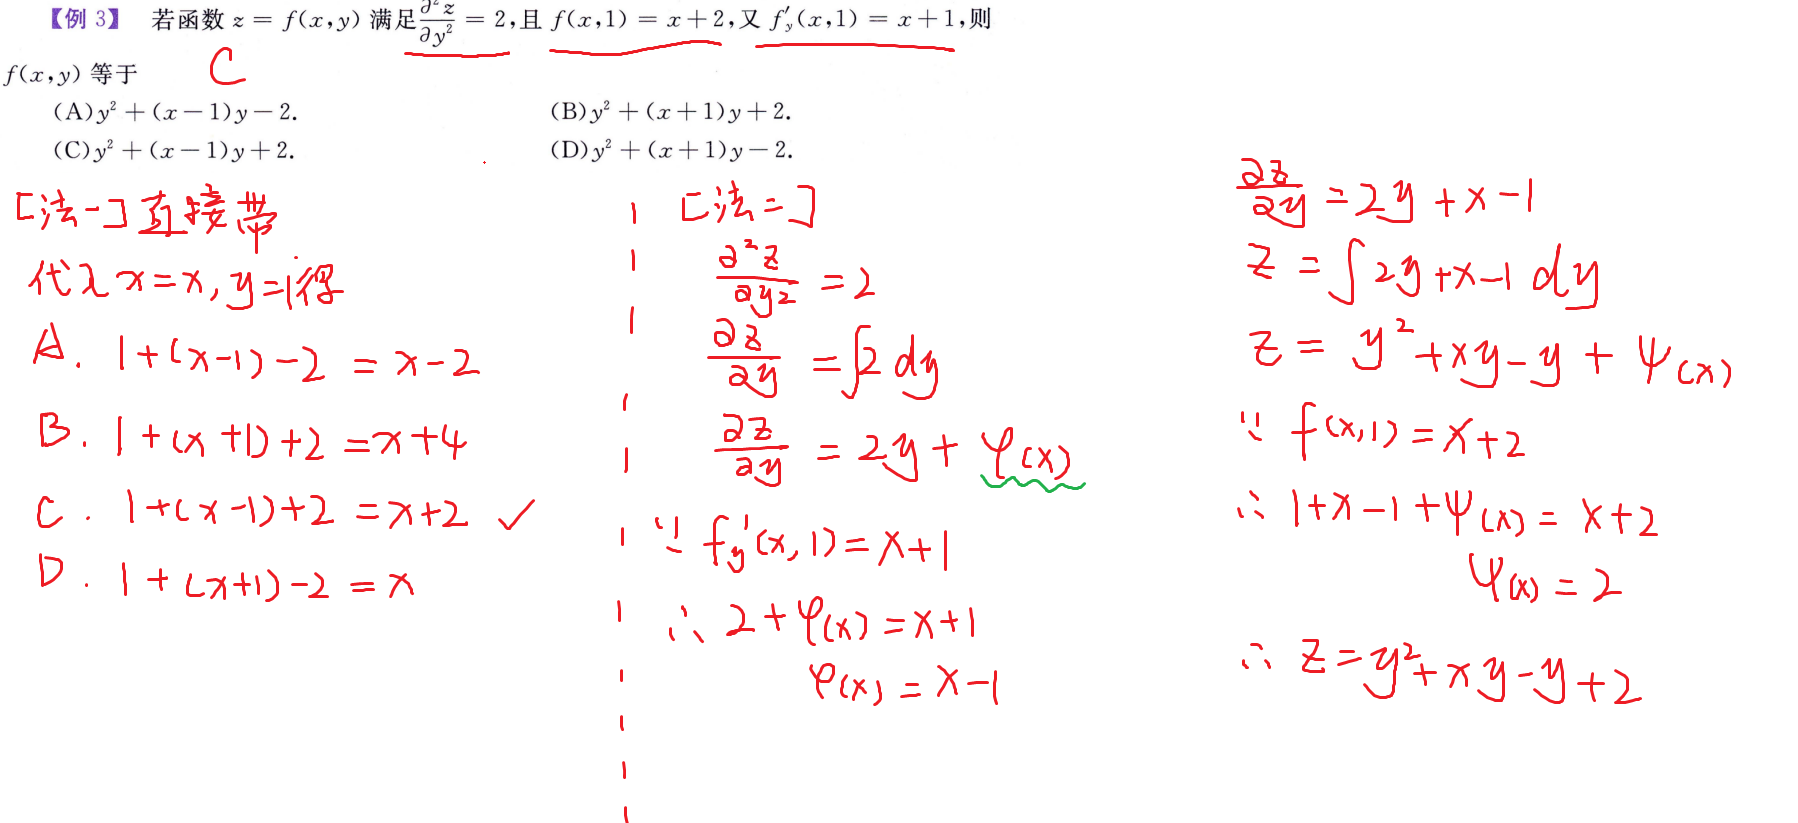 【例 3】 若函数 z = f(x,y) 满足 ∂²z/∂y² = 2,且 f(x,1) = x+2,又 f′y(x,1) = x+1,则
f(x,y) 等于 C
(A) y² + (x−1)y − 2. (B) y² + (x+1)y + 2.
(C) y² + (x−1)y + 2. (D) y² + (x+1)y − 2.
[法一] 直接带
代入 x=x, y=1得
A. 1+(x-1)-2 = x-2
B. 1+(x+1)+2 = x+4
C. 1+(x-1)+2 = x+2 ✓
D. 1+(x+1)-2 = x
[法二]
∂²z/∂y² = 2
∂z/∂y = ∫2 dy
∂z/∂y = 2y + φ(x)
∵ fy′(x,1) = x+1
∴ 2+φ(x) = x+1
φ(x) = x-1
∂z/∂y = 2y + x - 1
z = ∫2y+x-1 dy
z = y² + xy - y + ψ(x)
∵ f(x,1) = x+2
∴ 1+x-1+ψ(x) = x+2
ψ(x) = 2
∴ z = y²+xy-y+2